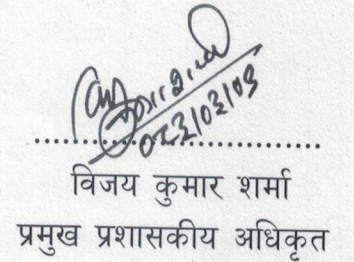 ०८३/०३/०९
विजय कुमार शर्मा
प्रमुख प्रशासकीय अधिकृत